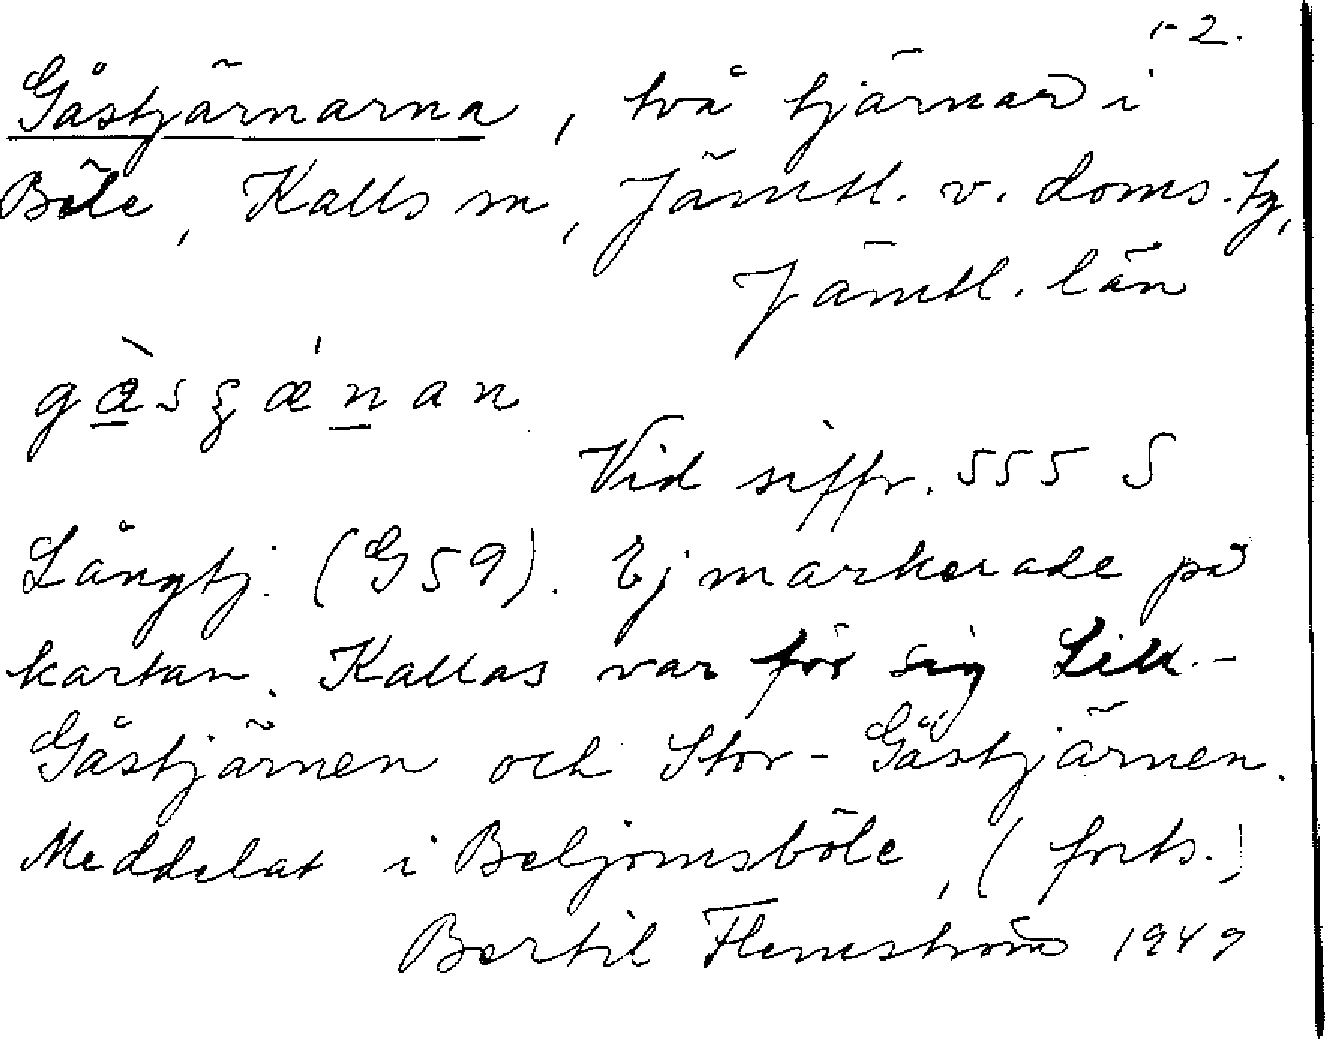 1-2.
Gåstjärnarna, två tjärnar i
Böle, Kalls sn, Jämtl. v. doms. tg,
Jämtl. län
gàsʒǽnan
Vid siffr. 555 S
Långtj. (G59). Ej markerade på
kartan. Kallas var för sig Lill-
Gåstjärnen och Stor-Gåstjärnen.
Meddelat i Beljomsböle, (forts.)
Bertil Flemström 1949